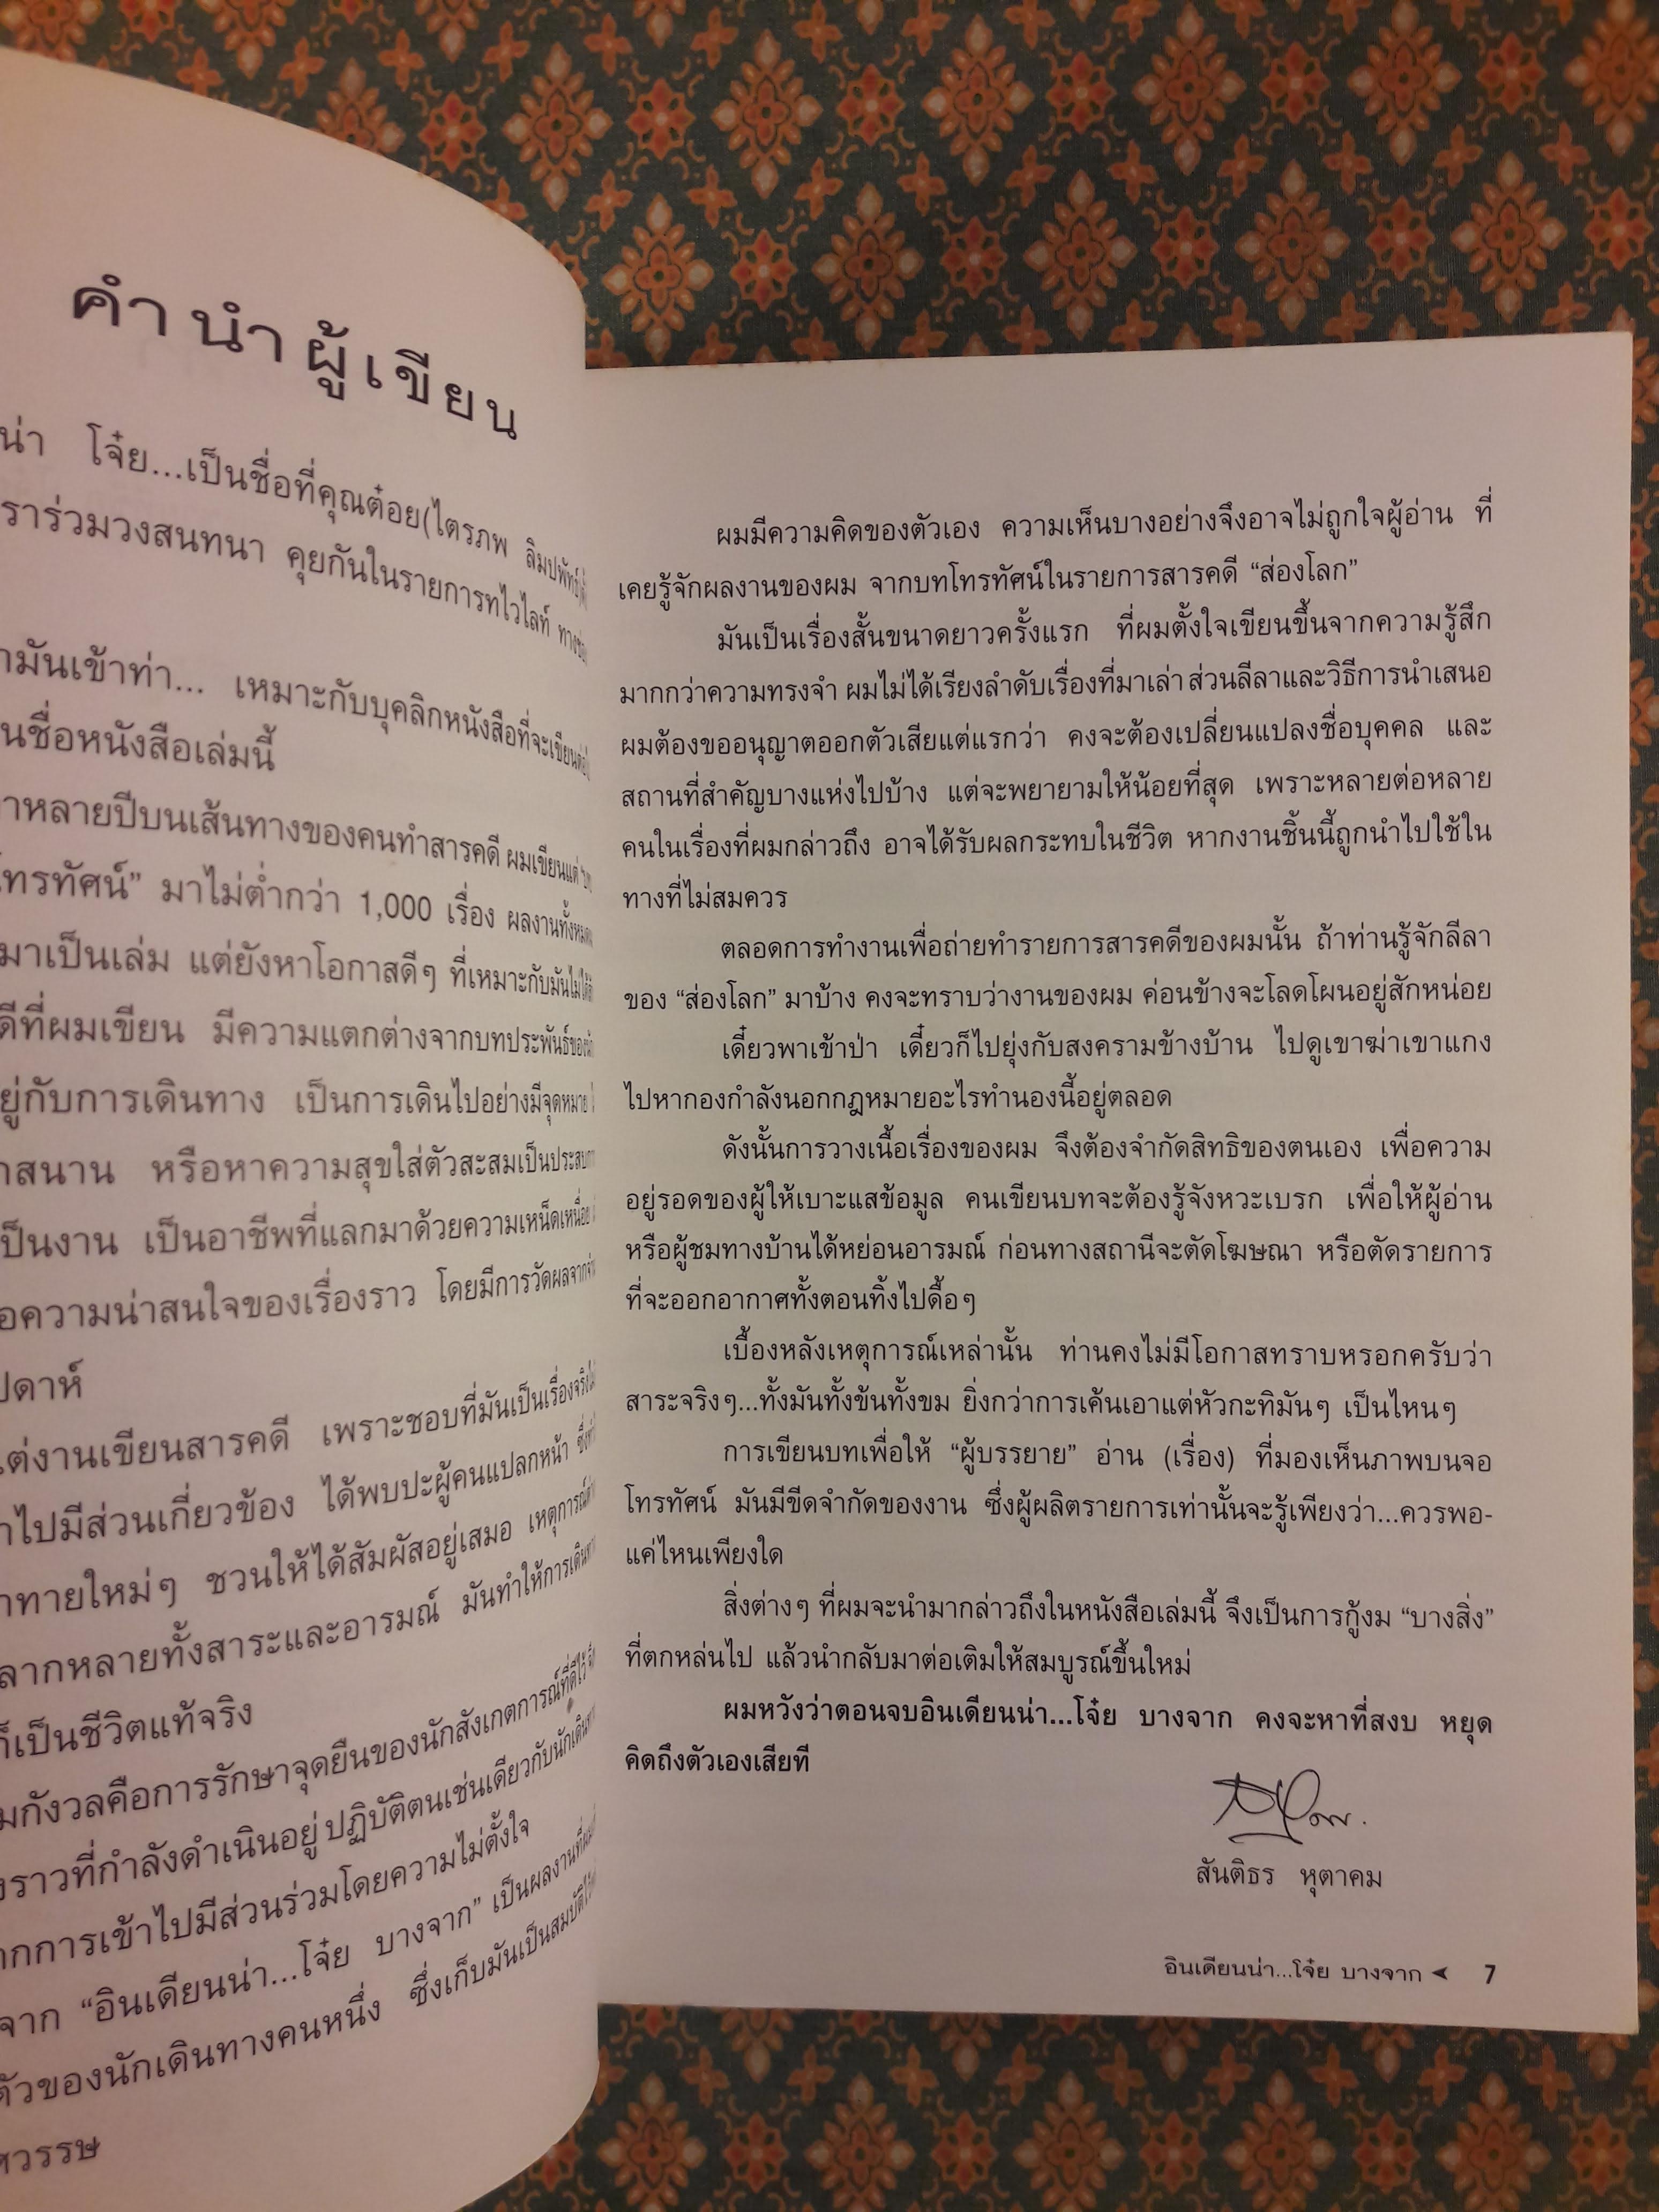 คำนำผู้เขียน
น่า โจ๋ย...เป็นชื่อที่คุณต๋อย(ไตรภพ ลิมปพัทธ์)
ราร่วมวงสนทนา คุยกันในรายการทไวไลท์
ามันเข้าท่า... เหมาะกับบุคลิกหนังสือที่จะเขียน
นชื่อหนังสือเล่มนี้
าหลายปีบนเส้นทางของคนทำสารคดี ผมเขียนแต่
โทรทัศน์” มาไม่ต่ำกว่า 1,000 เรื่อง ผลงานทั้งหมด
มาเป็นเล่ม แต่ยังหาโอกาสดีๆ ที่เหมาะกับมันไม่ได้
ดีที่ผมเขียน มีความแตกต่างจากบทประพันธ์ของ
ยู่กับการเดินทาง เป็นการเดินไปอย่างมีจุดหมาย
าสนาน หรือหาความสุขใส่ตัวสะสมเป็น
ป็นงาน เป็นอาชีพที่แลกมาด้วยความเหน็ดเหนื่อย
อความน่าสนใจของเรื่องราว โดยมีการวัดผลจาก
ปดาห์
แต่งานเขียนสารคดี เพราะชอบที่มันเป็นเรื่องจริง
าไปมีส่วนเกี่ยวข้อง ได้พบปะผู้คนแปลกหน้า
าทายใหม่ๆ ชวนให้ได้สัมผัสอยู่เสมอ เหตุการณ์
ลากหลายทั้งสาระและอารมณ์ มันทำให้การ
ก็เป็นชีวิตแท้จริง
มกังวลคือการรักษาจุดยืนของนักสังเกตการณ์ที่ดีไว้
งราวที่กำลังดำเนินอยู่ ปฏิบัติตนเช่นเดียวกับ
ากการเข้าไปมีส่วนร่วมโดยความไม่ตั้งใจ
จาก “อินเดียนน่า...โจ๋ย บางจาก” เป็นผลงานที่
ตัวของนักเดินทางคนหนึ่ง ซึ่งเก็บมันเป็นสมบัติ
ศวรรษ
ผมมีความคิดของตัวเอง ความเห็นบางอย่างจึงอาจไม่ถูกใจผู้อ่าน ที่
เคยรู้จักผลงานของผม จากบทโทรทัศน์ในรายการสารคดี “ส่องโลก”
มันเป็นเรื่องสั้นขนาดยาวครั้งแรก ที่ผมตั้งใจเขียนขึ้นจากความรู้สึก
มากกว่าความทรงจำ ผมไม่ได้เรียงลำดับเรื่องที่มาเล่า ส่วนลีลาและวิธีการนำเสนอ
ผมต้องขออนุญาตออกตัวเสียแต่แรกว่า คงจะต้องเปลี่ยนแปลงชื่อบุคคล และ
สถานที่สำคัญบางแห่งไปบ้าง แต่จะพยายามให้น้อยที่สุด เพราะหลายต่อหลาย
คนในเรื่องที่ผมกล่าวถึง อาจได้รับผลกระทบในชีวิต หากงานชิ้นนี้ถูกนำไปใช้ใน
ทางที่ไม่สมควร
ตลอดการทำงานเพื่อถ่ายทำรายการสารคดีของผมนั้น ถ้าท่านรู้จักลีลา
ของ “ส่องโลก” มาบ้าง คงจะทราบว่างานของผม ค่อนข้างจะโลดโผนอยู่สักหน่อย
เดี๋ยวพาเข้าป่า เดี๋ยวก็ไปยุ่งกับสงครามข้างบ้าน ไปดูเขาฆ่าเขาแกง
ไปหากองกำลังนอกกฎหมายอะไรทำนองนี้อยู่ตลอด
ดังนั้นการวางเนื้อเรื่องของผม จึงต้องจำกัดสิทธิของตนเอง เพื่อความ
อยู่รอดของผู้ให้เบาะแสข้อมูล คนเขียนบทจะต้องรู้จังหวะเบรก เพื่อให้ผู้อ่าน
หรือผู้ชมทางบ้านได้หย่อนอารมณ์ ก่อนทางสถานีจะตัดโฆษณา หรือตัดรายการ
ที่จะออกอากาศทั้งตอนทิ้งไปดื้อๆ
เบื้องหลังเหตุการณ์เหล่านั้น ท่านคงไม่มีโอกาสทราบหรอกครับว่า
สาระจริงๆ...ทั้งมันทั้งข้นทั้งขม ยิ่งกว่าการเค้นเอาแต่หัวกะทิมันๆ เป็นไหนๆ
การเขียนบทเพื่อให้ “ผู้บรรยาย” อ่าน (เรื่อง) ที่มองเห็นภาพบนจอ
โทรทัศน์ มันมีขีดจำกัดของงาน ซึ่งผู้ผลิตรายการเท่านั้นจะรู้เพียงว่า...ควรพอ-
แค่ไหนเพียงใด
สิ่งต่างๆ ที่ผมจะนำมากล่าวถึงในหนังสือเล่มนี้ จึงเป็นการกู้งม “บางสิ่ง”
ที่ตกหล่นไป แล้วนำกลับมาต่อเติมให้สมบูรณ์ขึ้นใหม่
ผมหวังว่าตอนจบอินเดียนน่า...โจ๋ย บางจาก คงจะหาที่สงบ หยุด
คิดถึงตัวเองเสียที
สันติธร หุตาคม
อินเดียนน่า...โจ๋ย บางจาก 7